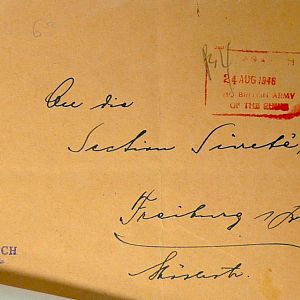 24 AUG 1946
HQ BRITISH ARMY
OF THE RHINE
An die
Section Sûreté,
Freiburg i/Br
CH